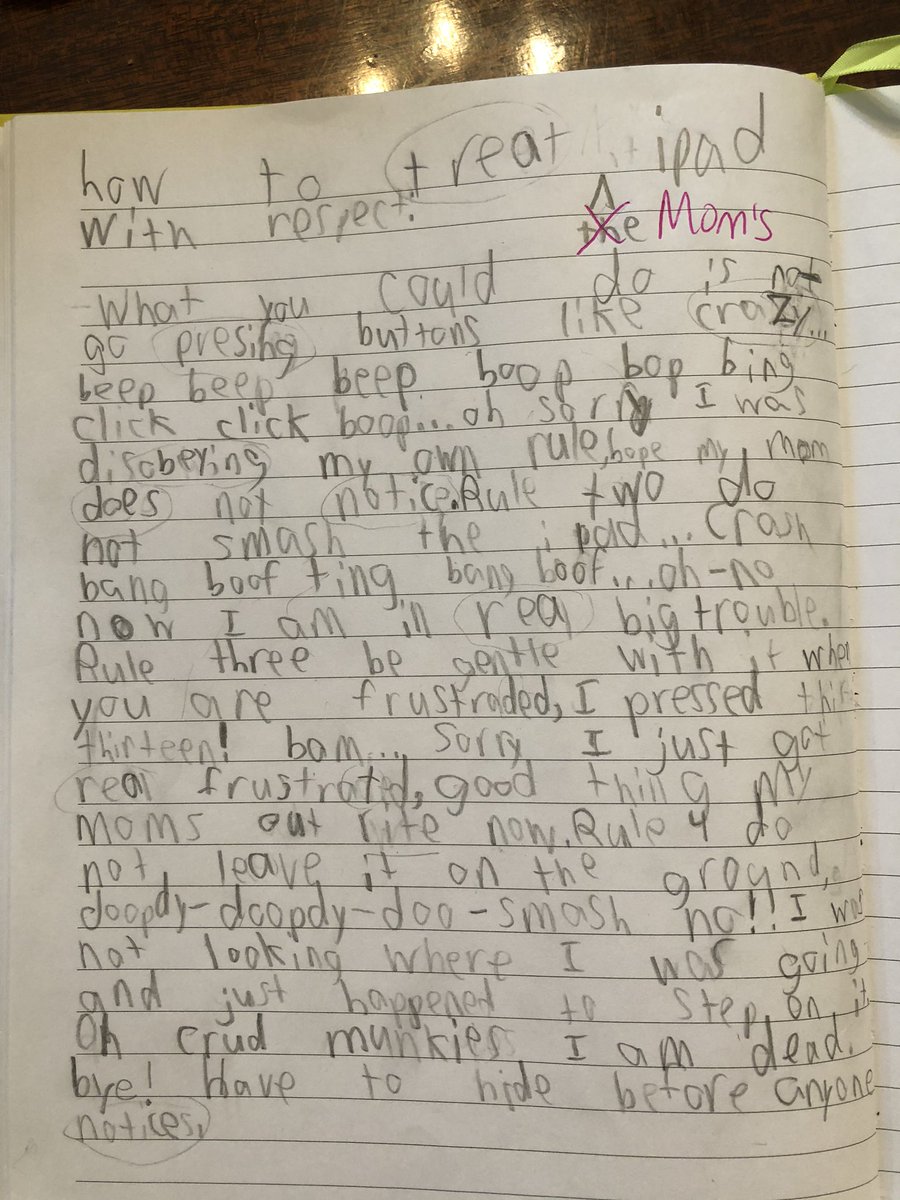 how to treat ipad
with respect.
the Mom's
What you could do is not
go presing buttons like crazy...
beep beep beep boop bop bing
click click boop...oh sorry I was
disobeying my own rule, hope my mom
does not notice. Rule two do
not smash the ipad...Crash
bang boof ting bang boof...oh-no
now I am in real big trouble.
Rule three be gentle with it when
you are frustraded, I pressed thirt
thirteen! bam... Sorry I just got
real frustrated, good thing my
moms out rite now. Rule 4 do
not leave it on the ground,
doopdy-doopdy-doo-smash no!! I was
not looking where I was going
and just happened to step on it
Oh crud munkies I am dead.
bye! Have to hide before anyone
notices.